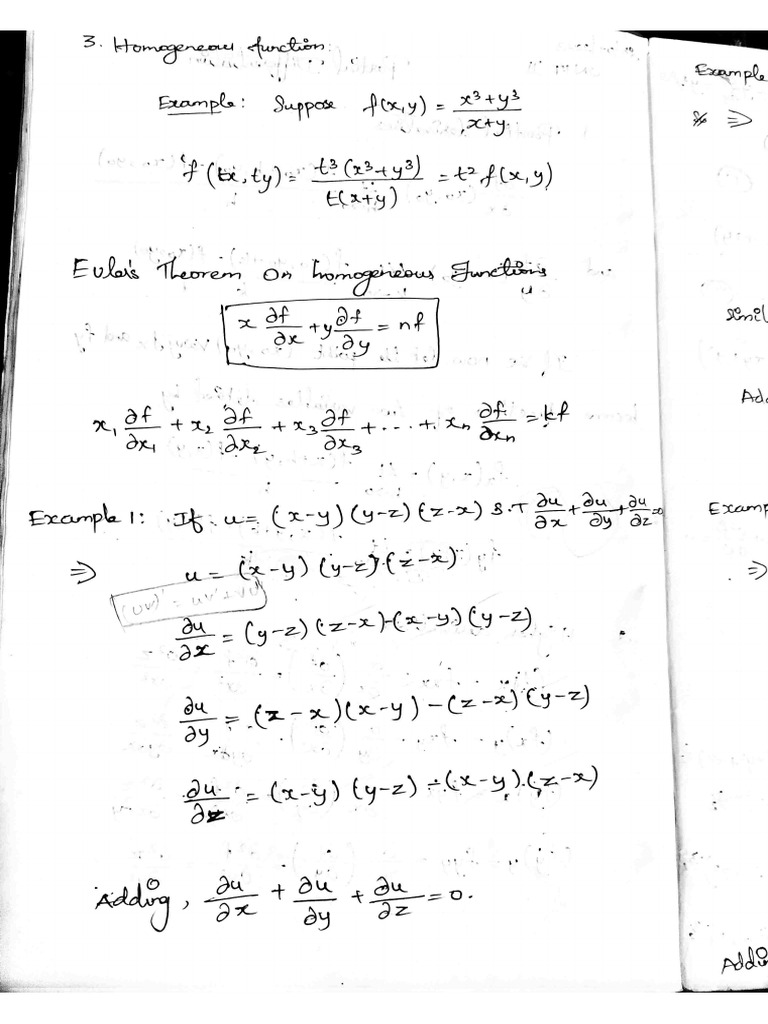 3. Homogeneous function:
Example: Suppose f(x,y) = x³+y³ / x+y.
f(tx,ty) = t³(x³+y³) / t(x+y) = t² f(x,y)
Euler's Theorem on homogeneous Functions
x ∂f/∂x + y ∂f/∂y = nf
x₁ ∂f/∂x₁ + x₂ ∂f/∂x₂ + x₃ ∂f/∂x₃ + ... + xₙ ∂f/∂xₙ = kf
Example 1: If u = (x-y)(y-z)(z-x) S.T ∂u/∂x + ∂u/∂y + ∂u/∂z = 0
⇒ u = (x-y)(y-z)(z-x)
∂u/∂x = (y-z)(z-x)-(x-y)(y-z)
∂u/∂y = (z-x)(x-y)-(z-x)(y-z)
∂u/∂z = (x-y)(y-z)-(x-y).(z-x)
Adding, ∂u/∂x + ∂u/∂y + ∂u/∂z = 0.
Example
⇒
Simil
Add
Examp
⇒
Addin